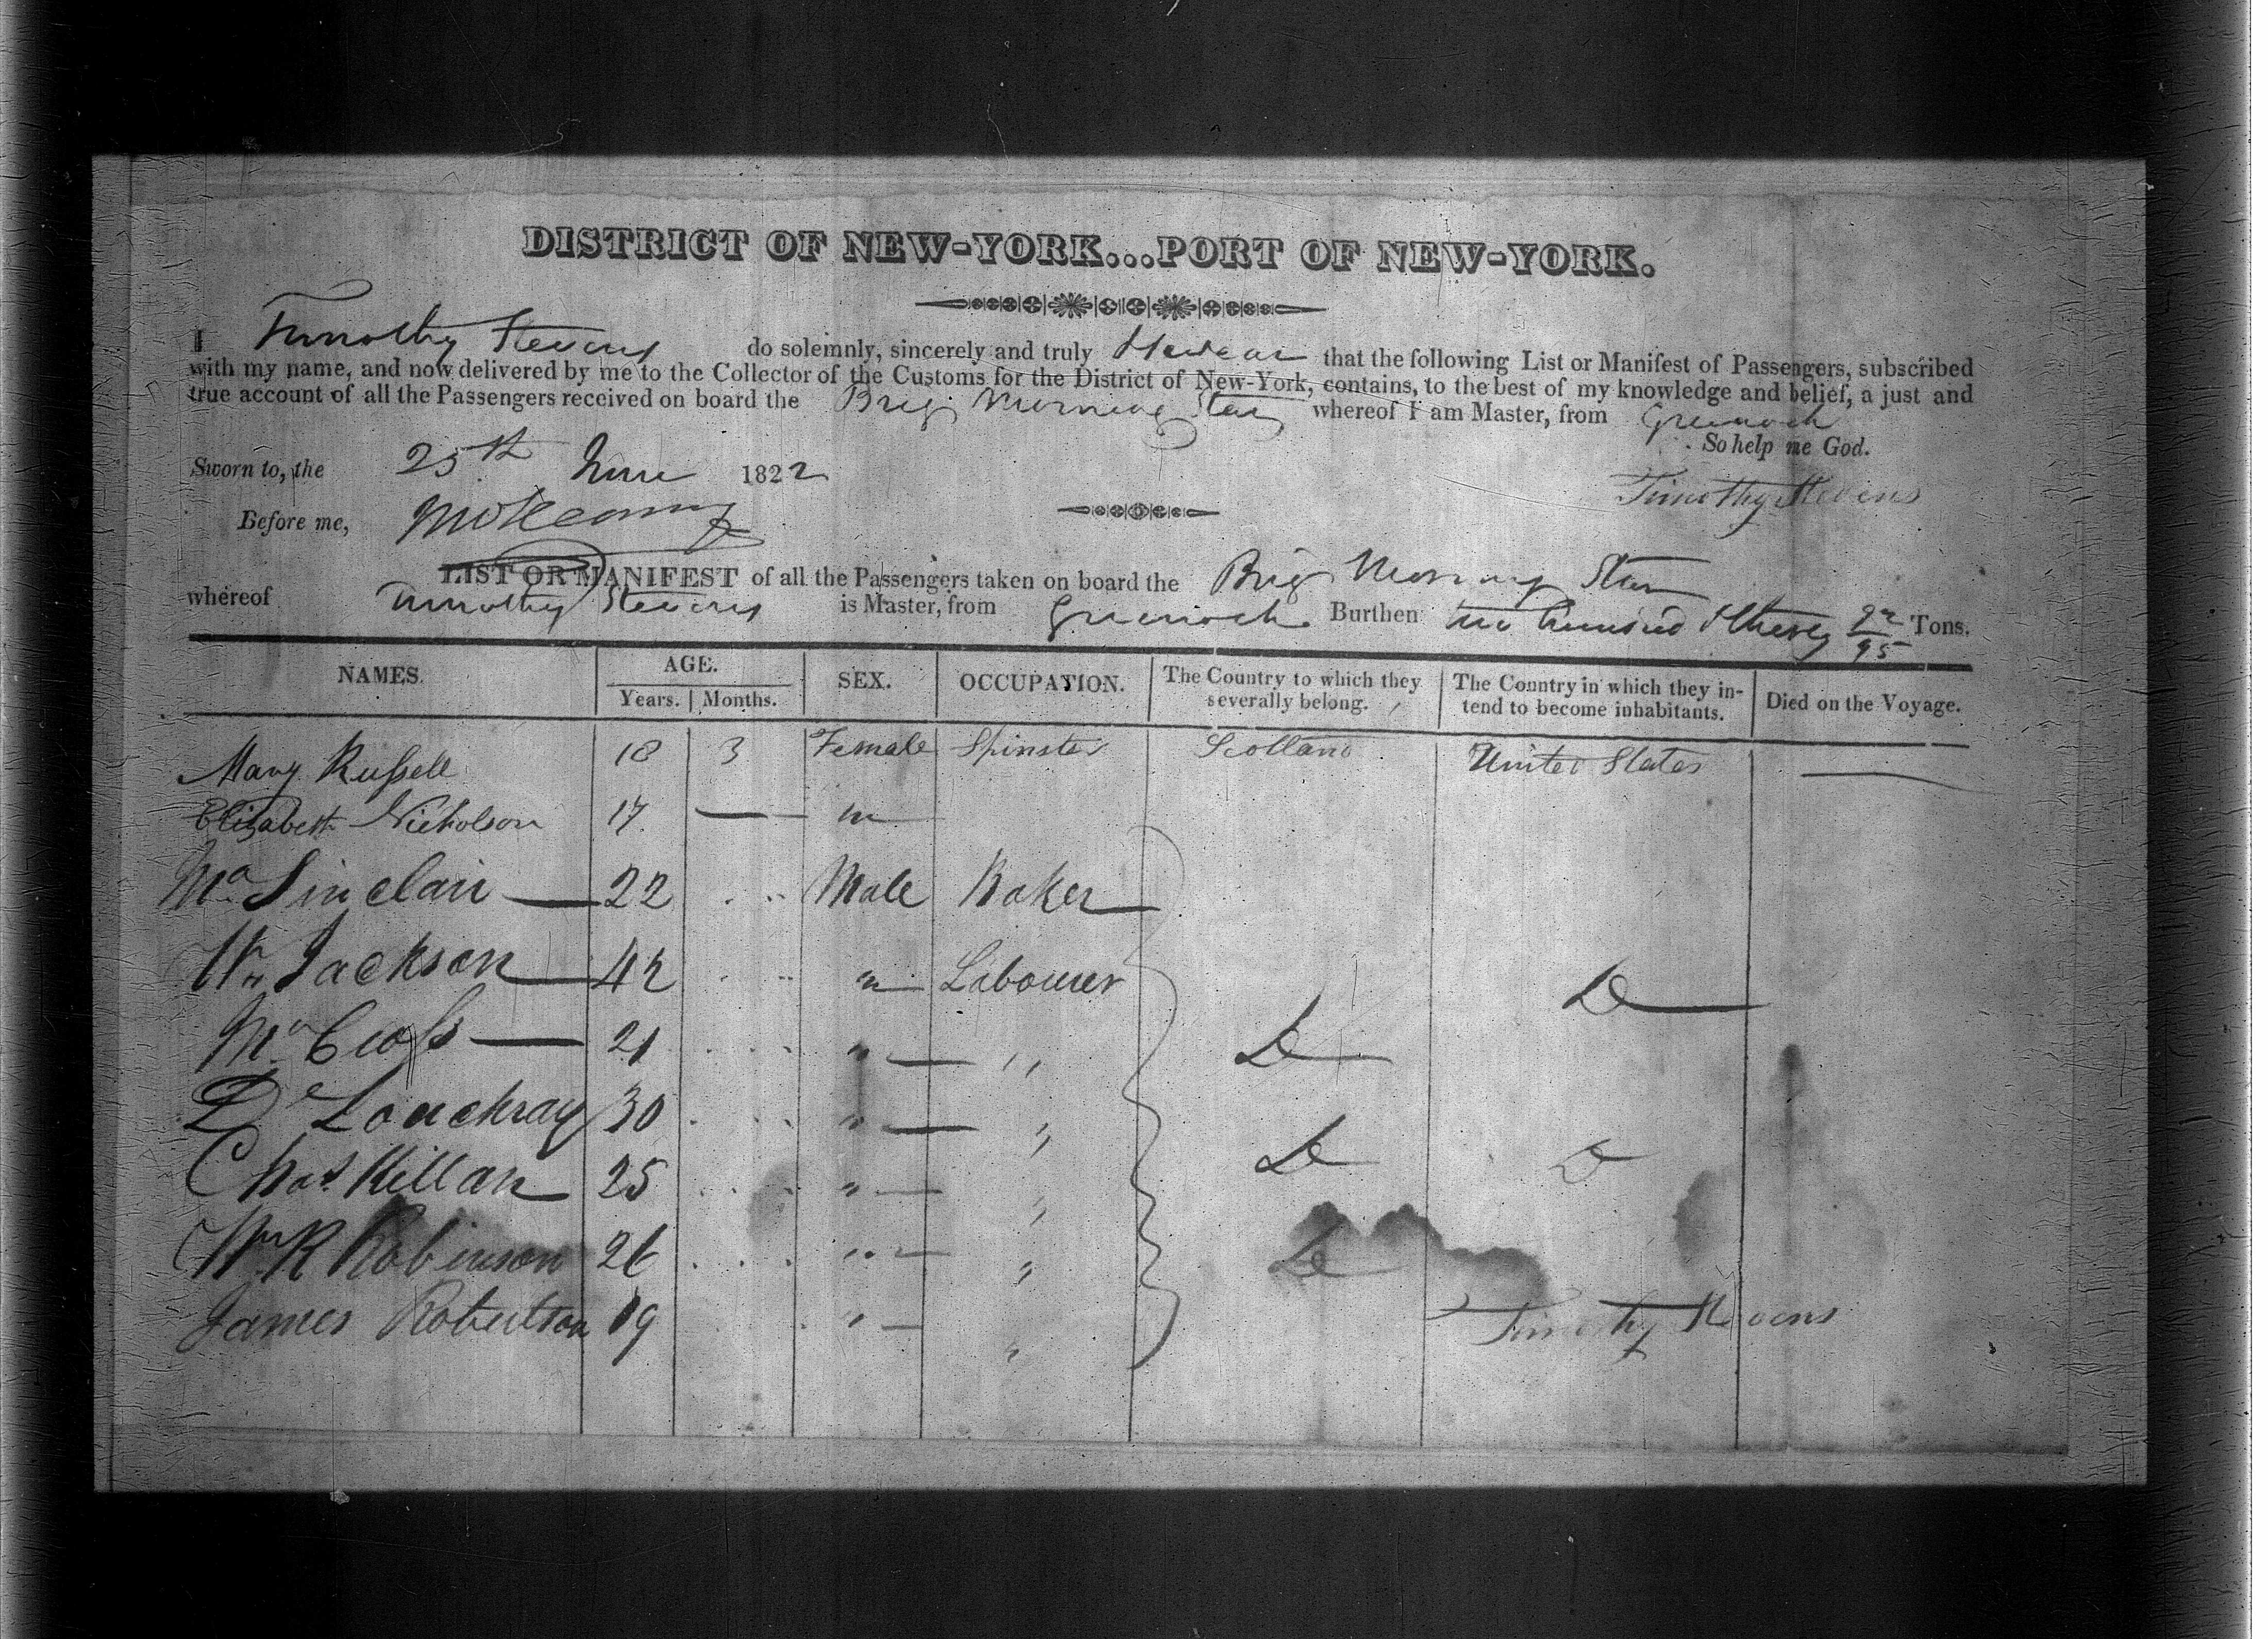 DISTRICT OF NEW-YORK...PORT OF NEW-YORK.
I Timothy Stevens do solemnly, sincerely and truly Swear that the following List or Manifest of Passengers, subscribed
with my name, and now delivered by me to the Collector of the Customs for the District of New-York, contains, to the best of my knowledge and belief, a just and
true account of all the Passengers received on board the Brig Morning Star whereof I am Master, from Greenock
So help me God.
Sworn to, the 25th June 1822
Timothy Stevens
Before me,
LIST OR MANIFEST of all the Passengers taken on board the Brig Morning Star
whereof Timothy Stevens is Master, from Greenock Burthen two hundred & thirty 92/95 Tons.
NAMES. AGE. SEX. OCCUPATION. The Country to which they severally belong. The Country in which they intend to become inhabitants. Died on the Voyage.
Years. Months.
Mary Russell 18 3 Female Spinster Scotland United States —
Elizabeth Nicholson 17 — "
Sinclair — 22 Male Baker
Wm Jackson 42 " Labourer Do
21 " " Do
30 " "
Chas Killan 25 " " Do Do
Wm R Robinson 26 " " Do
James Robertson 19 " "
Timothy Stevens